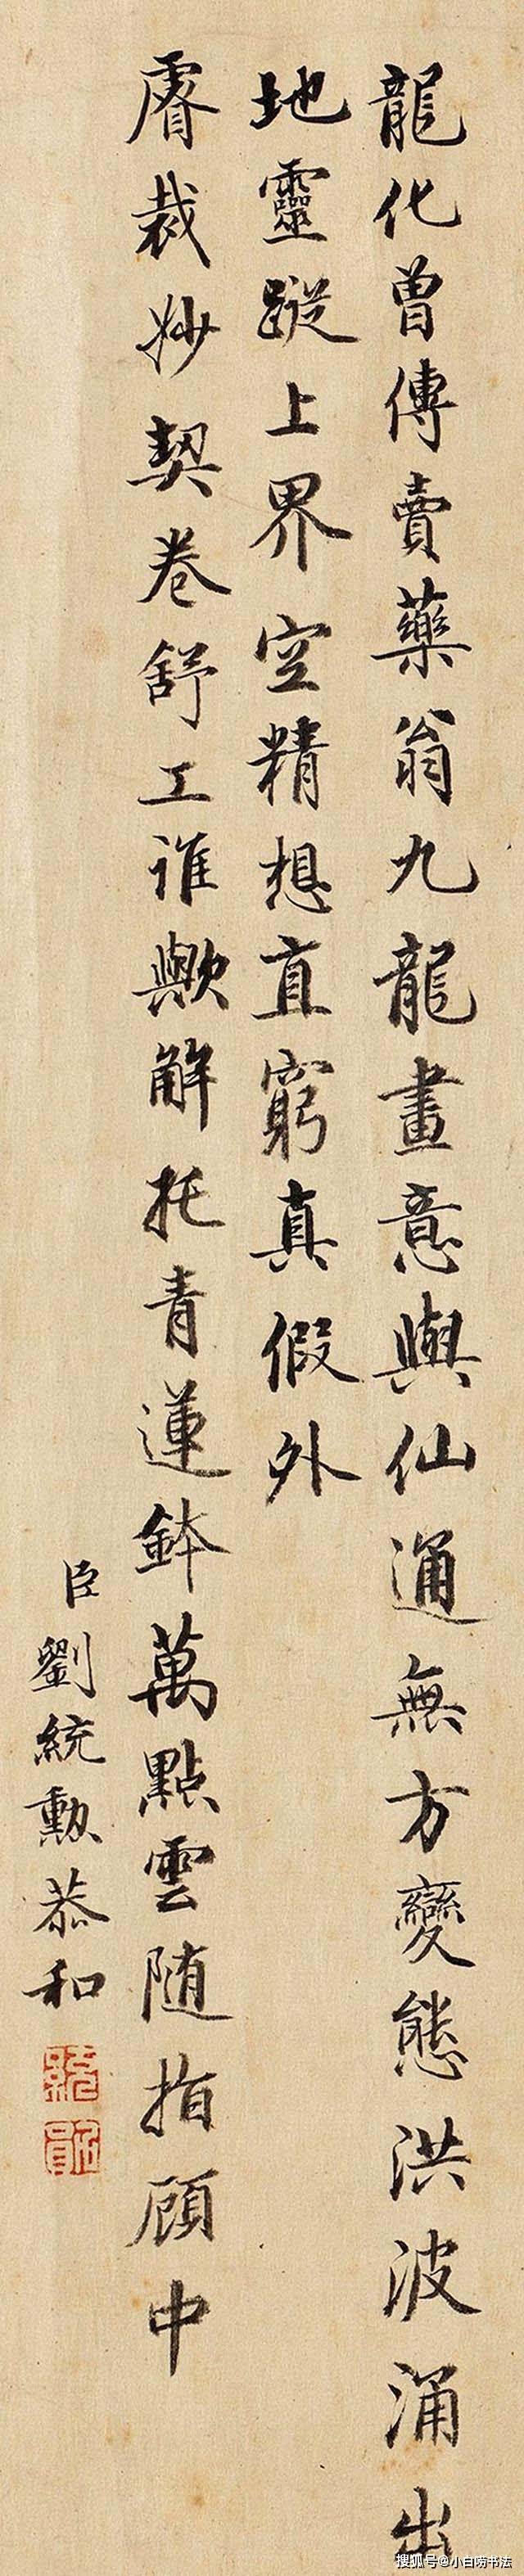 龍化曾傳賣藥翁九龍畫意與仙通無方變態洪波涌出
地靈蹤上界空精想直窮真假外
睿裁妙契卷舒工誰歟解托青蓮鉢萬點雲随指顧中
臣劉統勲恭和
搜狐号@小白唠书法